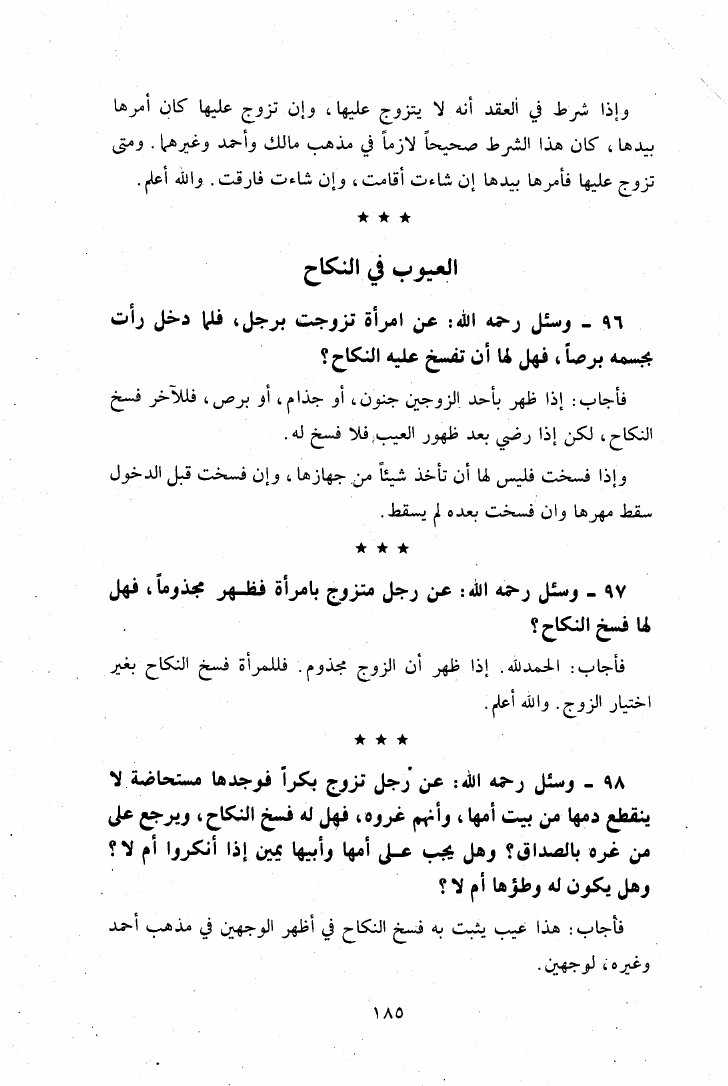 وإذا شرط في العقد أنه لا يتزوج عليها، وإن تزوج عليها كان أمرها
بيدها، كان هذا الشرط صحيحاً لازماً في مذهب مالك وأحمد وغيرهما. ومتى
تزوج عليها فأمرها بيدها إن شاءت أقامت، وإن شاءت فارقت. والله أعلم.
★ ★ ★
العيوب في النكاح
٩٦ - وسئل رحمه الله: عن امرأة تزوجت برجل، فلما دخل رأت
بجسمه برصاً، فهل لها أن تفسخ عليه النكاح؟
فأجاب: إذا ظهر بأحد الزوجين جنون، أو جذام، أو برص، فللآخر فسخ
النكاح، لكن إذا رضي بعد ظهور العيب فلا فسخ له.
وإذا فسخت فليس لها أن تأخذ شيئاً من جهازها، وإن فسخت قبل الدخول
سقط مهرها وان فسخت بعده لم يسقط.
★ ★ ★
٩٧ - وسئل رحمه الله: عن رجل متزوج بامرأة فظهر مجذوماً، فهل
لها فسخ النكاح؟
فأجاب: الحمدلله. إذا ظهر أن الزوج مجذوم. فللمرأة فسخ النكاح بغير
اختيار الزوج. والله أعلم.
★ ★ ★
٩٨ - وسئل رحمه الله: عن رجل تزوج بكراً فوجدها مستحاضة لا
ينقطع دمها من بيت أمها، وأنهم غروه، فهل له فسخ النكاح، ويرجع على
من غره بالصداق؟ وهل يجب على أمها وأبيها يمين إذا أنكروا أم لا؟
وهل يكون له وطؤها أم لا؟
فأجاب: هذا عيب يثبت به فسخ النكاح في أظهر الوجهين في مذهب أحمد
وغيره، لوجهين.
١٨٥